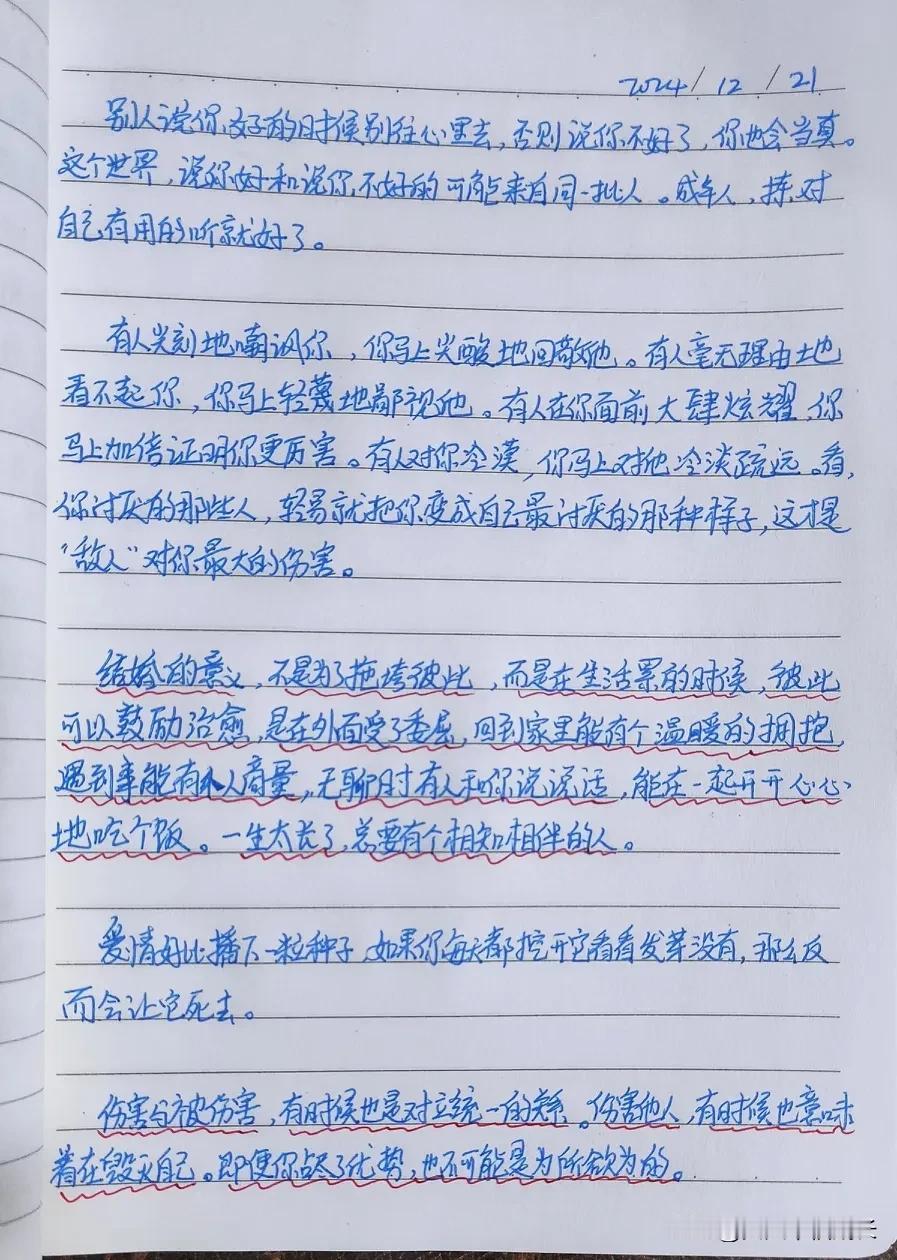 2024/12/21
别人说你好的时候别往心里去，否则说你不好了，你也会当真。
这个世界，说你好和说你不好的可能来自同一批人。成年人，拣对
自己有用的听就好了。
有人尖刻地嘲讽你，你马上尖酸地回敬他。有人毫无理由地
看不起你，你马上轻蔑地鄙视他。有人在你面前大肆炫耀，你
马上加倍证明你更厉害。有人对你冷漠，你马上对他冷淡疏远。看，
你讨厌的那些人，轻易就把你变成自己最讨厌的那种样子，这才是
“敌人”对你最大的伤害。
结婚的意义，不是为了拖垮彼此，而是在生活累的时候，彼此
可以鼓励治愈，是在外面受了委屈，回到家里能有个温暖的拥抱，
遇到事能有个人商量，无聊时有人和你说说话，能在一起开开心心
地吃个饭。一生太长了，总要有个相知相伴的人。
爱情好比播下一粒种子，如果你每天都挖开它看看发芽没有，那么反
而会让它死去。
伤害与被伤害，有时候也是对立统一的关系。伤害他人，有时候也意味
着在毁灭自己。即便你占尽了优势，也不可能是为所欲为的。